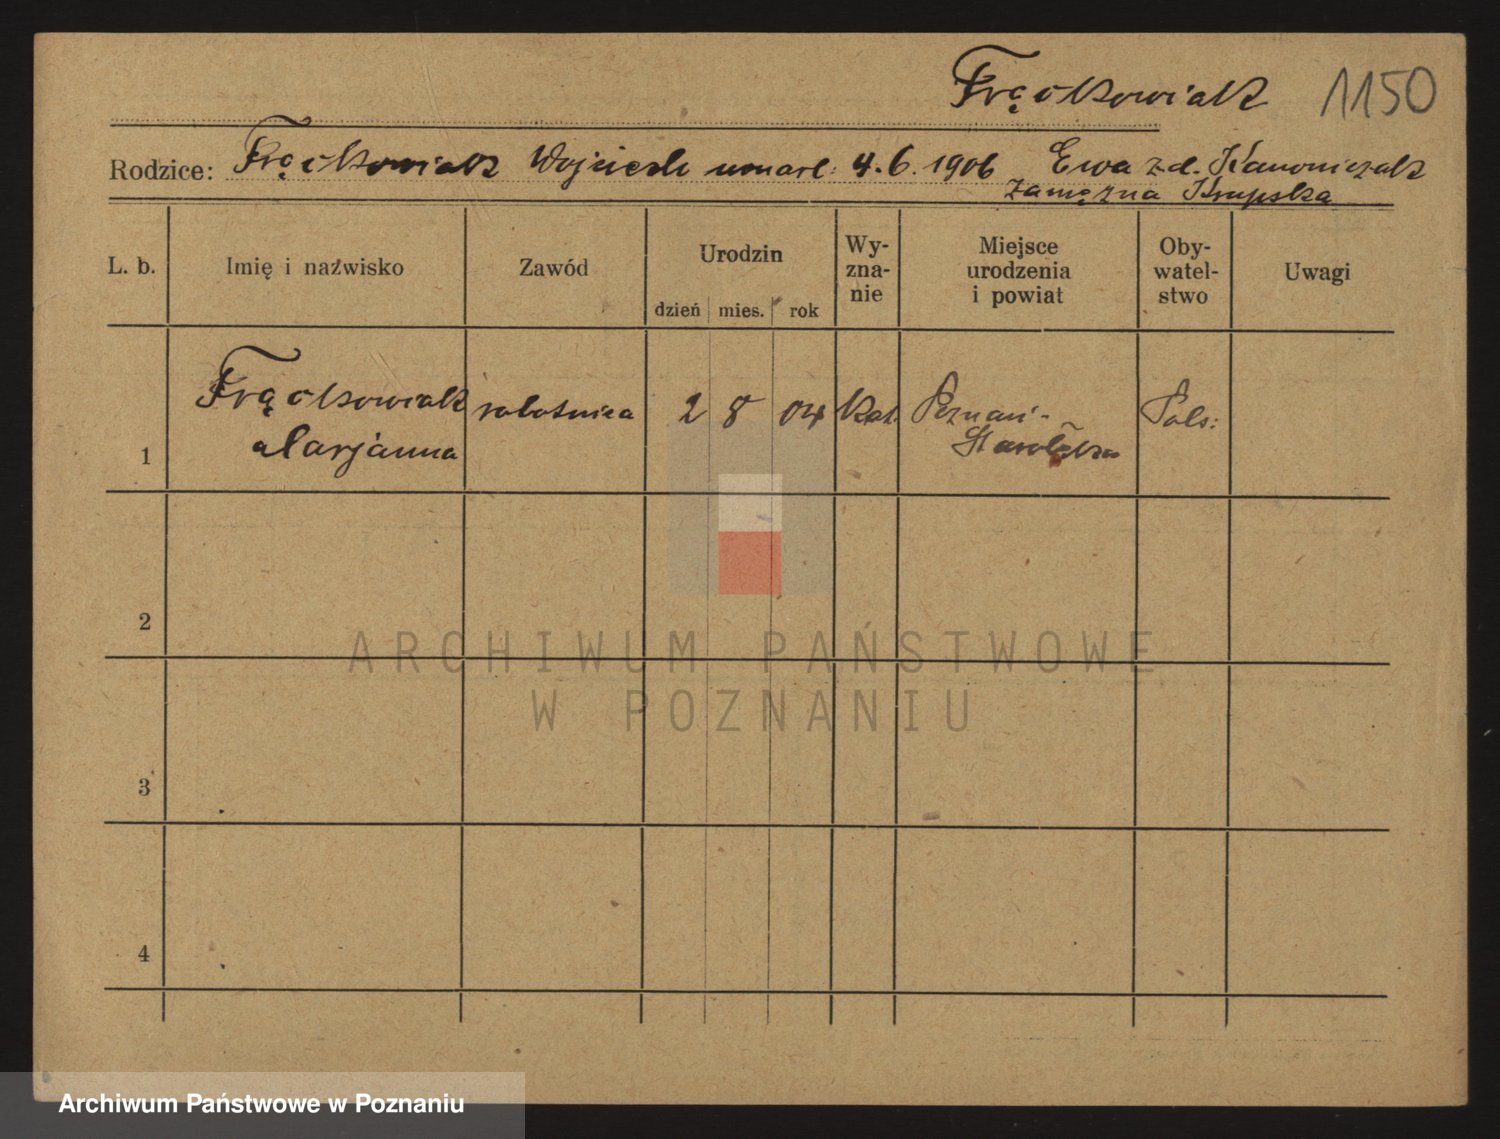 Frąckowiak 1150
Rodzice: Frąckowiak Wojciech umarł: 4.6.1906 Ewa z d. Kanoniczak
zamężna Krupska
L. b. Imię i nazwisko Zawód Urodzin dzień mies. rok Wy-zna-nie Miejsce urodzenia i powiat Oby-watel-stwo Uwagi
Frąckowiak robotnica 2 8 04 Kat. Poznań- Pols:
1 Marjanna Starołęka
2
3
4
ARCHIWUM PAŃSTWOWE
W POZNANIU
Archiwum Państwowe w Poznaniu